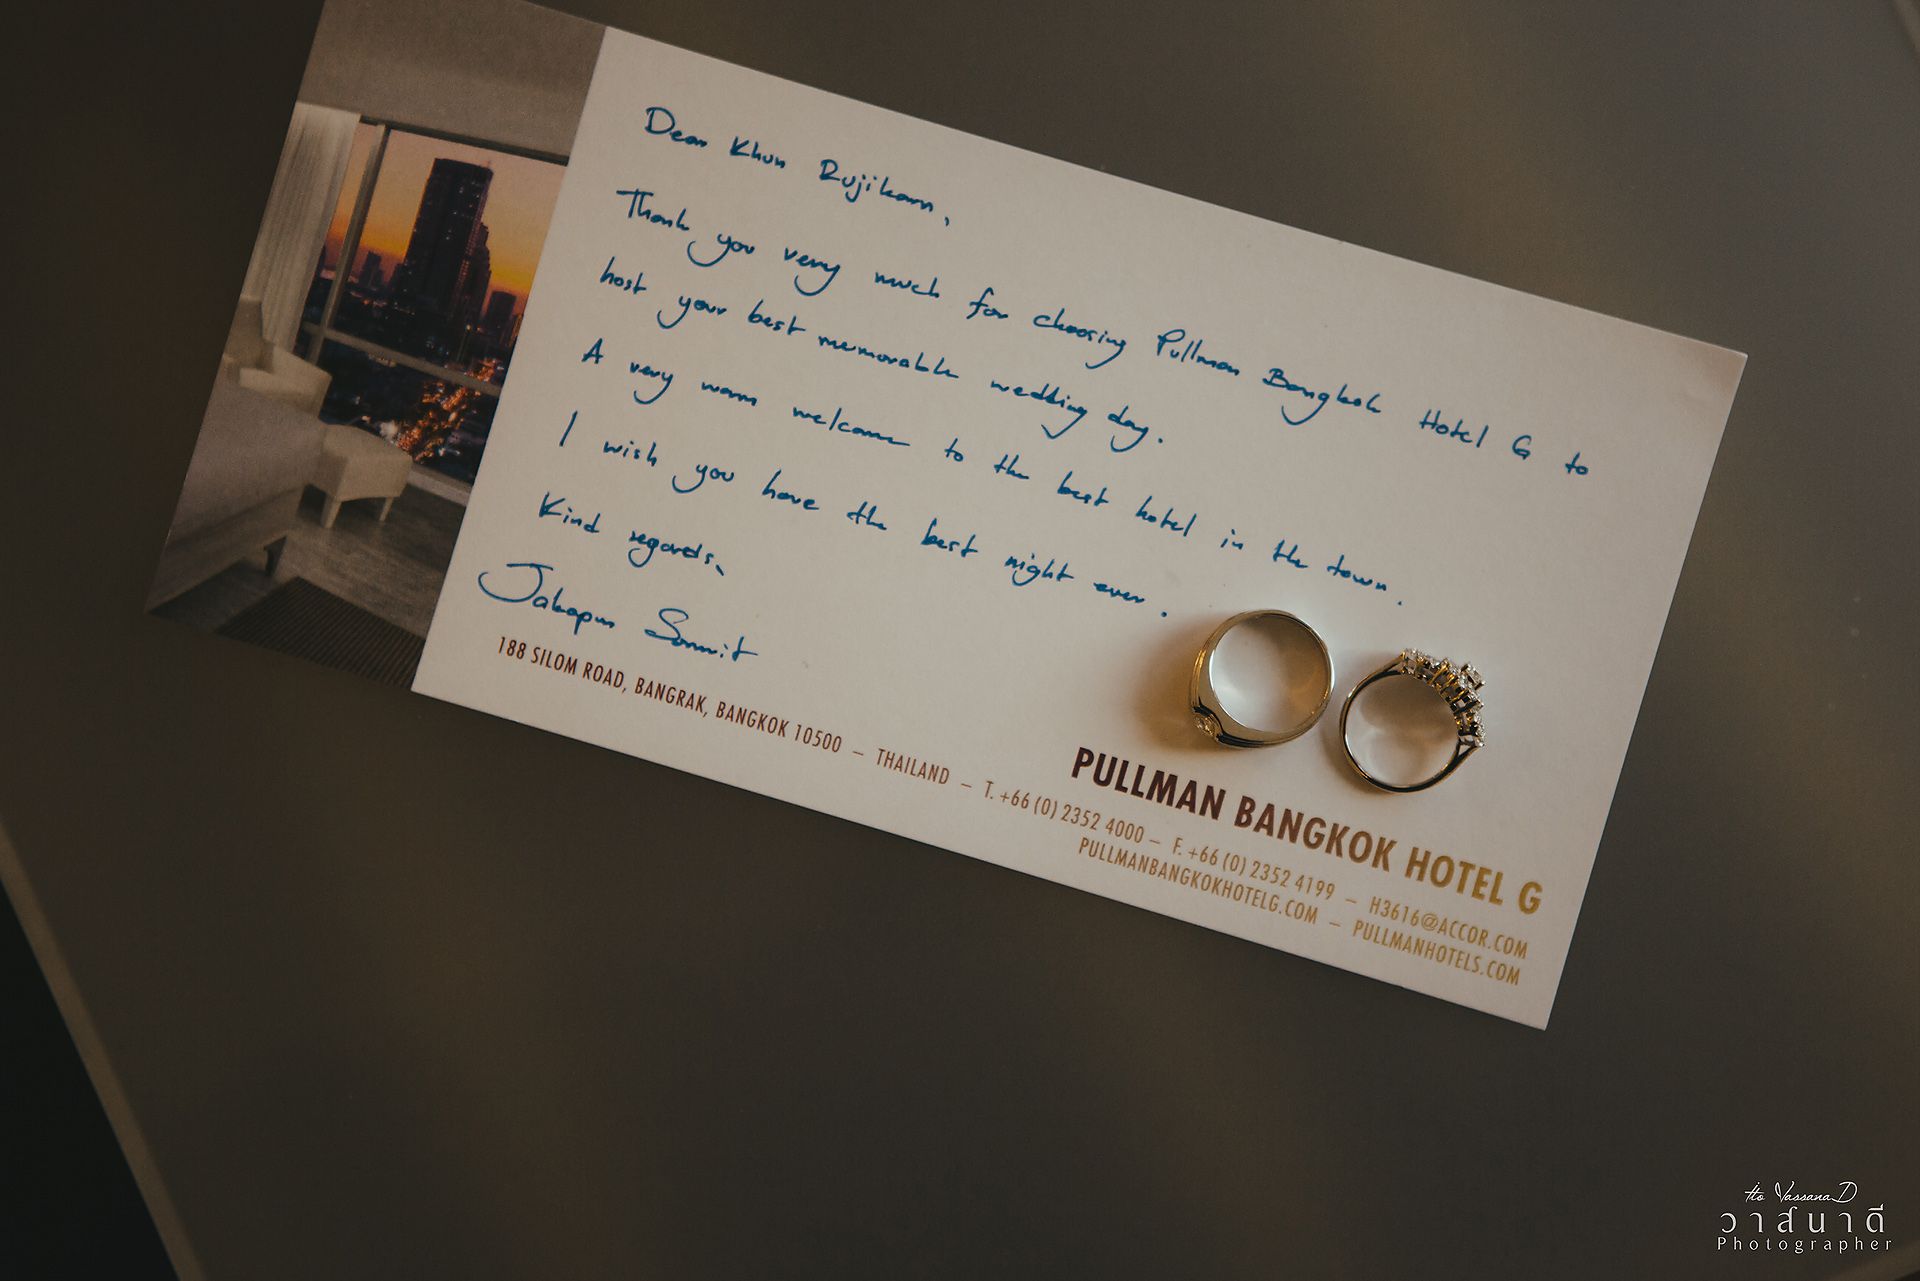 Dear Khun Rujikarn,
Thank you very much for choosing Pullman Bangkok Hotel G to
host your best memorable wedding day.
A very warm welcome to the best hotel in the town.
I wish you have the best night ever.
Kind regards,
188 SILOM ROAD, BANGRAK, BANGKOK 10500 – THAILAND – T. +66 (0) 2352 4000 – F. +66 (0) 2352 4199 – H3616@ACCOR.COM
PULLMANBANGKOKHOTELG.COM – PULLMANHOTELS.COM
PULLMAN BANGKOK HOTEL G
VassanaD
วาสนาดี
Photographer